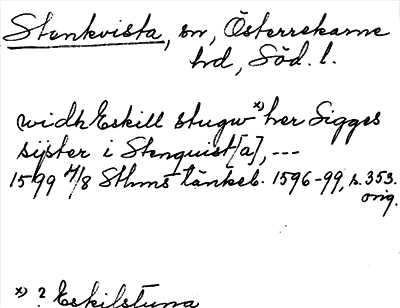 Stenkvista, sn, Österrekarne
hd, Söd. l.
widh Eskill stugw x) her Sigges
syster i Stenquist[a], ---
1599 4/8 Sthms tänkeb. 1596-99, s. 353.
orig.
x) ? Eskilstuna